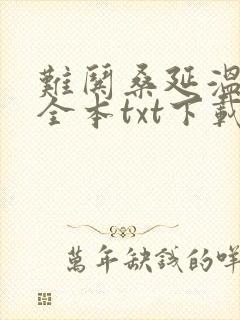 難關桑延溫
全本txt下載
萬年缺錢的咩